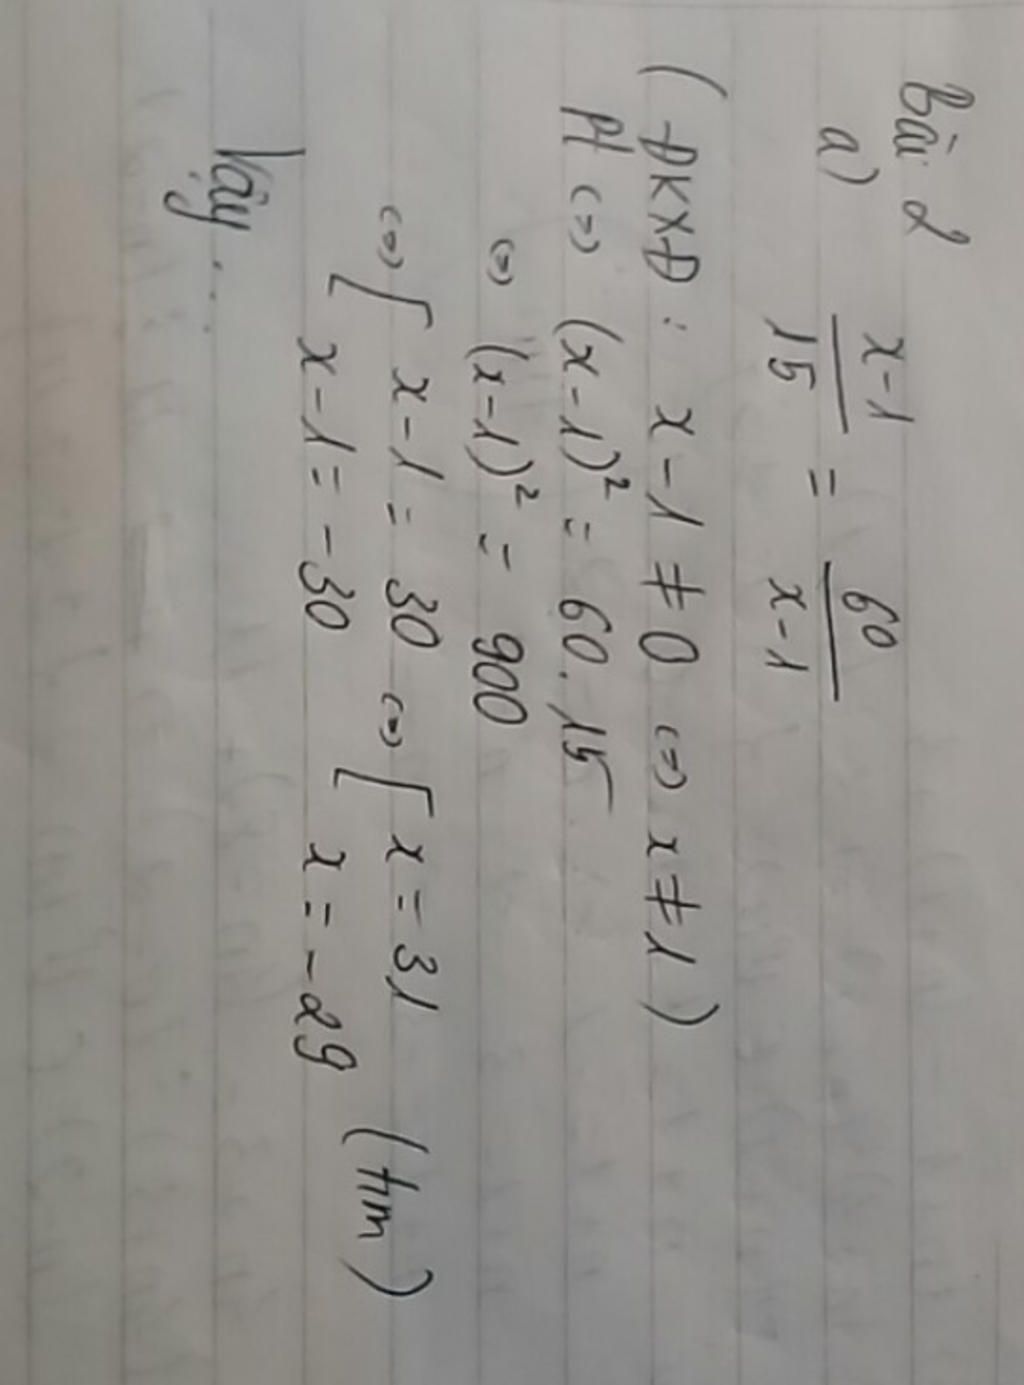 Bài 2
a) x-1/15 = 60/x-1
( ĐKXĐ : x-1 ≠ 0 <=> x ≠ 1 )
Pt <=> (x-1)² = 60.15
<=> (x-1)² = 900
<=> [ x-1 = 30 <=> [ x = 31
x-1 = -30 x = -29 (tm)
Vậy...